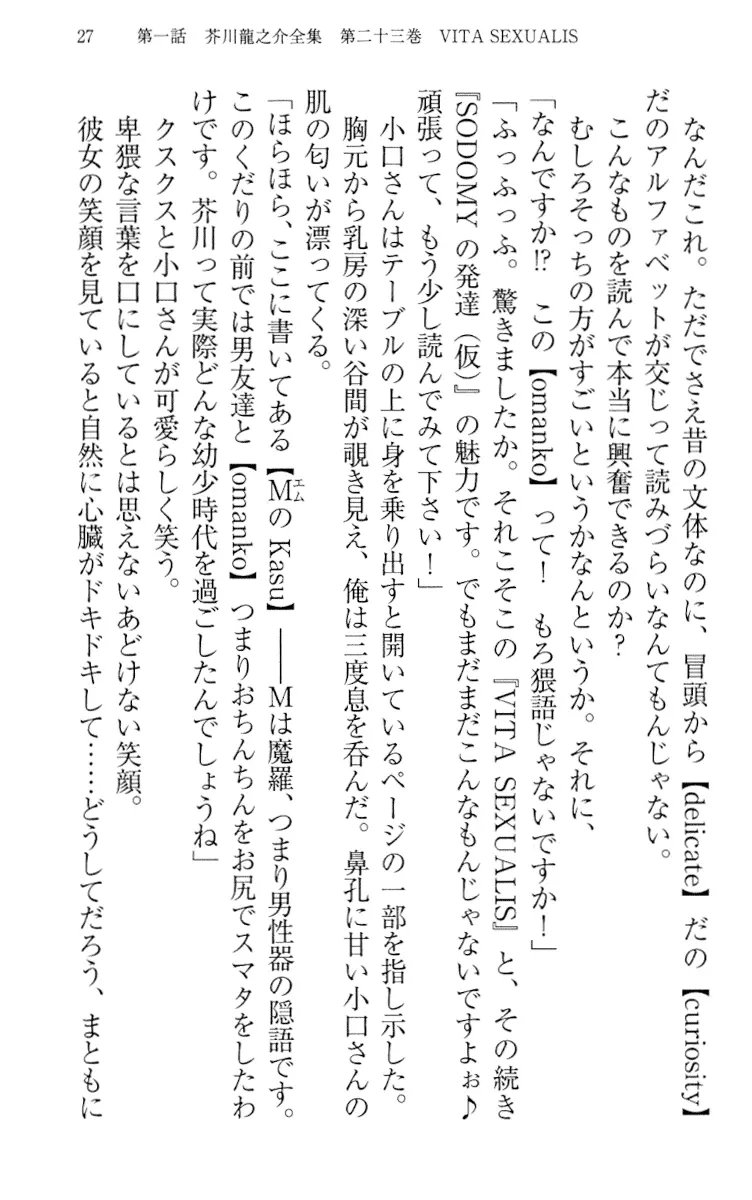 27　第一話　芥川龍之介全集　第二十三巻　VITA SEXUALIS
なんだこれ。ただでさえ昔の文体なのに、冒頭から【delicate】だの【curiosity】
だのアルファベットが交じって読みづらいなんてもんじゃない。
こんなものを読んで本当に興奮できるのか？
むしろそっちの方がすごいというかなんというか。それに、
「なんですか⁉　この【omanko】って！　もろ猥語じゃないですか！」
「ふっふっふ。驚きましたか。それこそこの『VITA SEXUALIS』と、その続き
『SODOMYの発達（仮）』の魅力です。でもまだまだこんなもんじゃないですよぉ♪
頑張って、もう少し読んでみて下さい！」
小口さんはテーブルの上に身を乗り出すと開いているページの一部を指し示した。
胸元から乳房の深い谷間が覗き見え、俺は三度息を呑んだ。鼻孔に甘い小口さんの
肌の匂いが漂ってくる。
「ほらほら、ここに書いてある【MエムのKasu】――Mは魔羅、つまり男性器の隠語です。
このくだりの前では男友達と【omanko】つまりおちんちんをお尻でスマタをしたわ
けです。芥川って実際どんな幼少時代を過ごしたんでしょうね」
クスクスと小口さんが可愛らしく笑う。
卑猥な言葉を口にしているとは思えないあどけない笑顔。
彼女の笑顔を見ていると自然に心臓がドキドキして……どうしてだろう、まともに